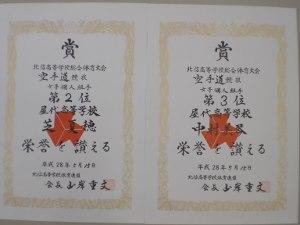 賞
北信高等学校総合体育大会
空手道競技
女子個人組手
第2位
屋代高等学校
美穂
栄誉を讃える
平成28年5月15日
北信高等学校体育連盟
会長 山岸重文
賞
北信高等学校総合体育大会
空手道競技
女子個人組手
第3位
屋代高等学校
中村
栄誉を讃える
平成28年5月15日
北信高等学校体育連盟
会長 山岸重文